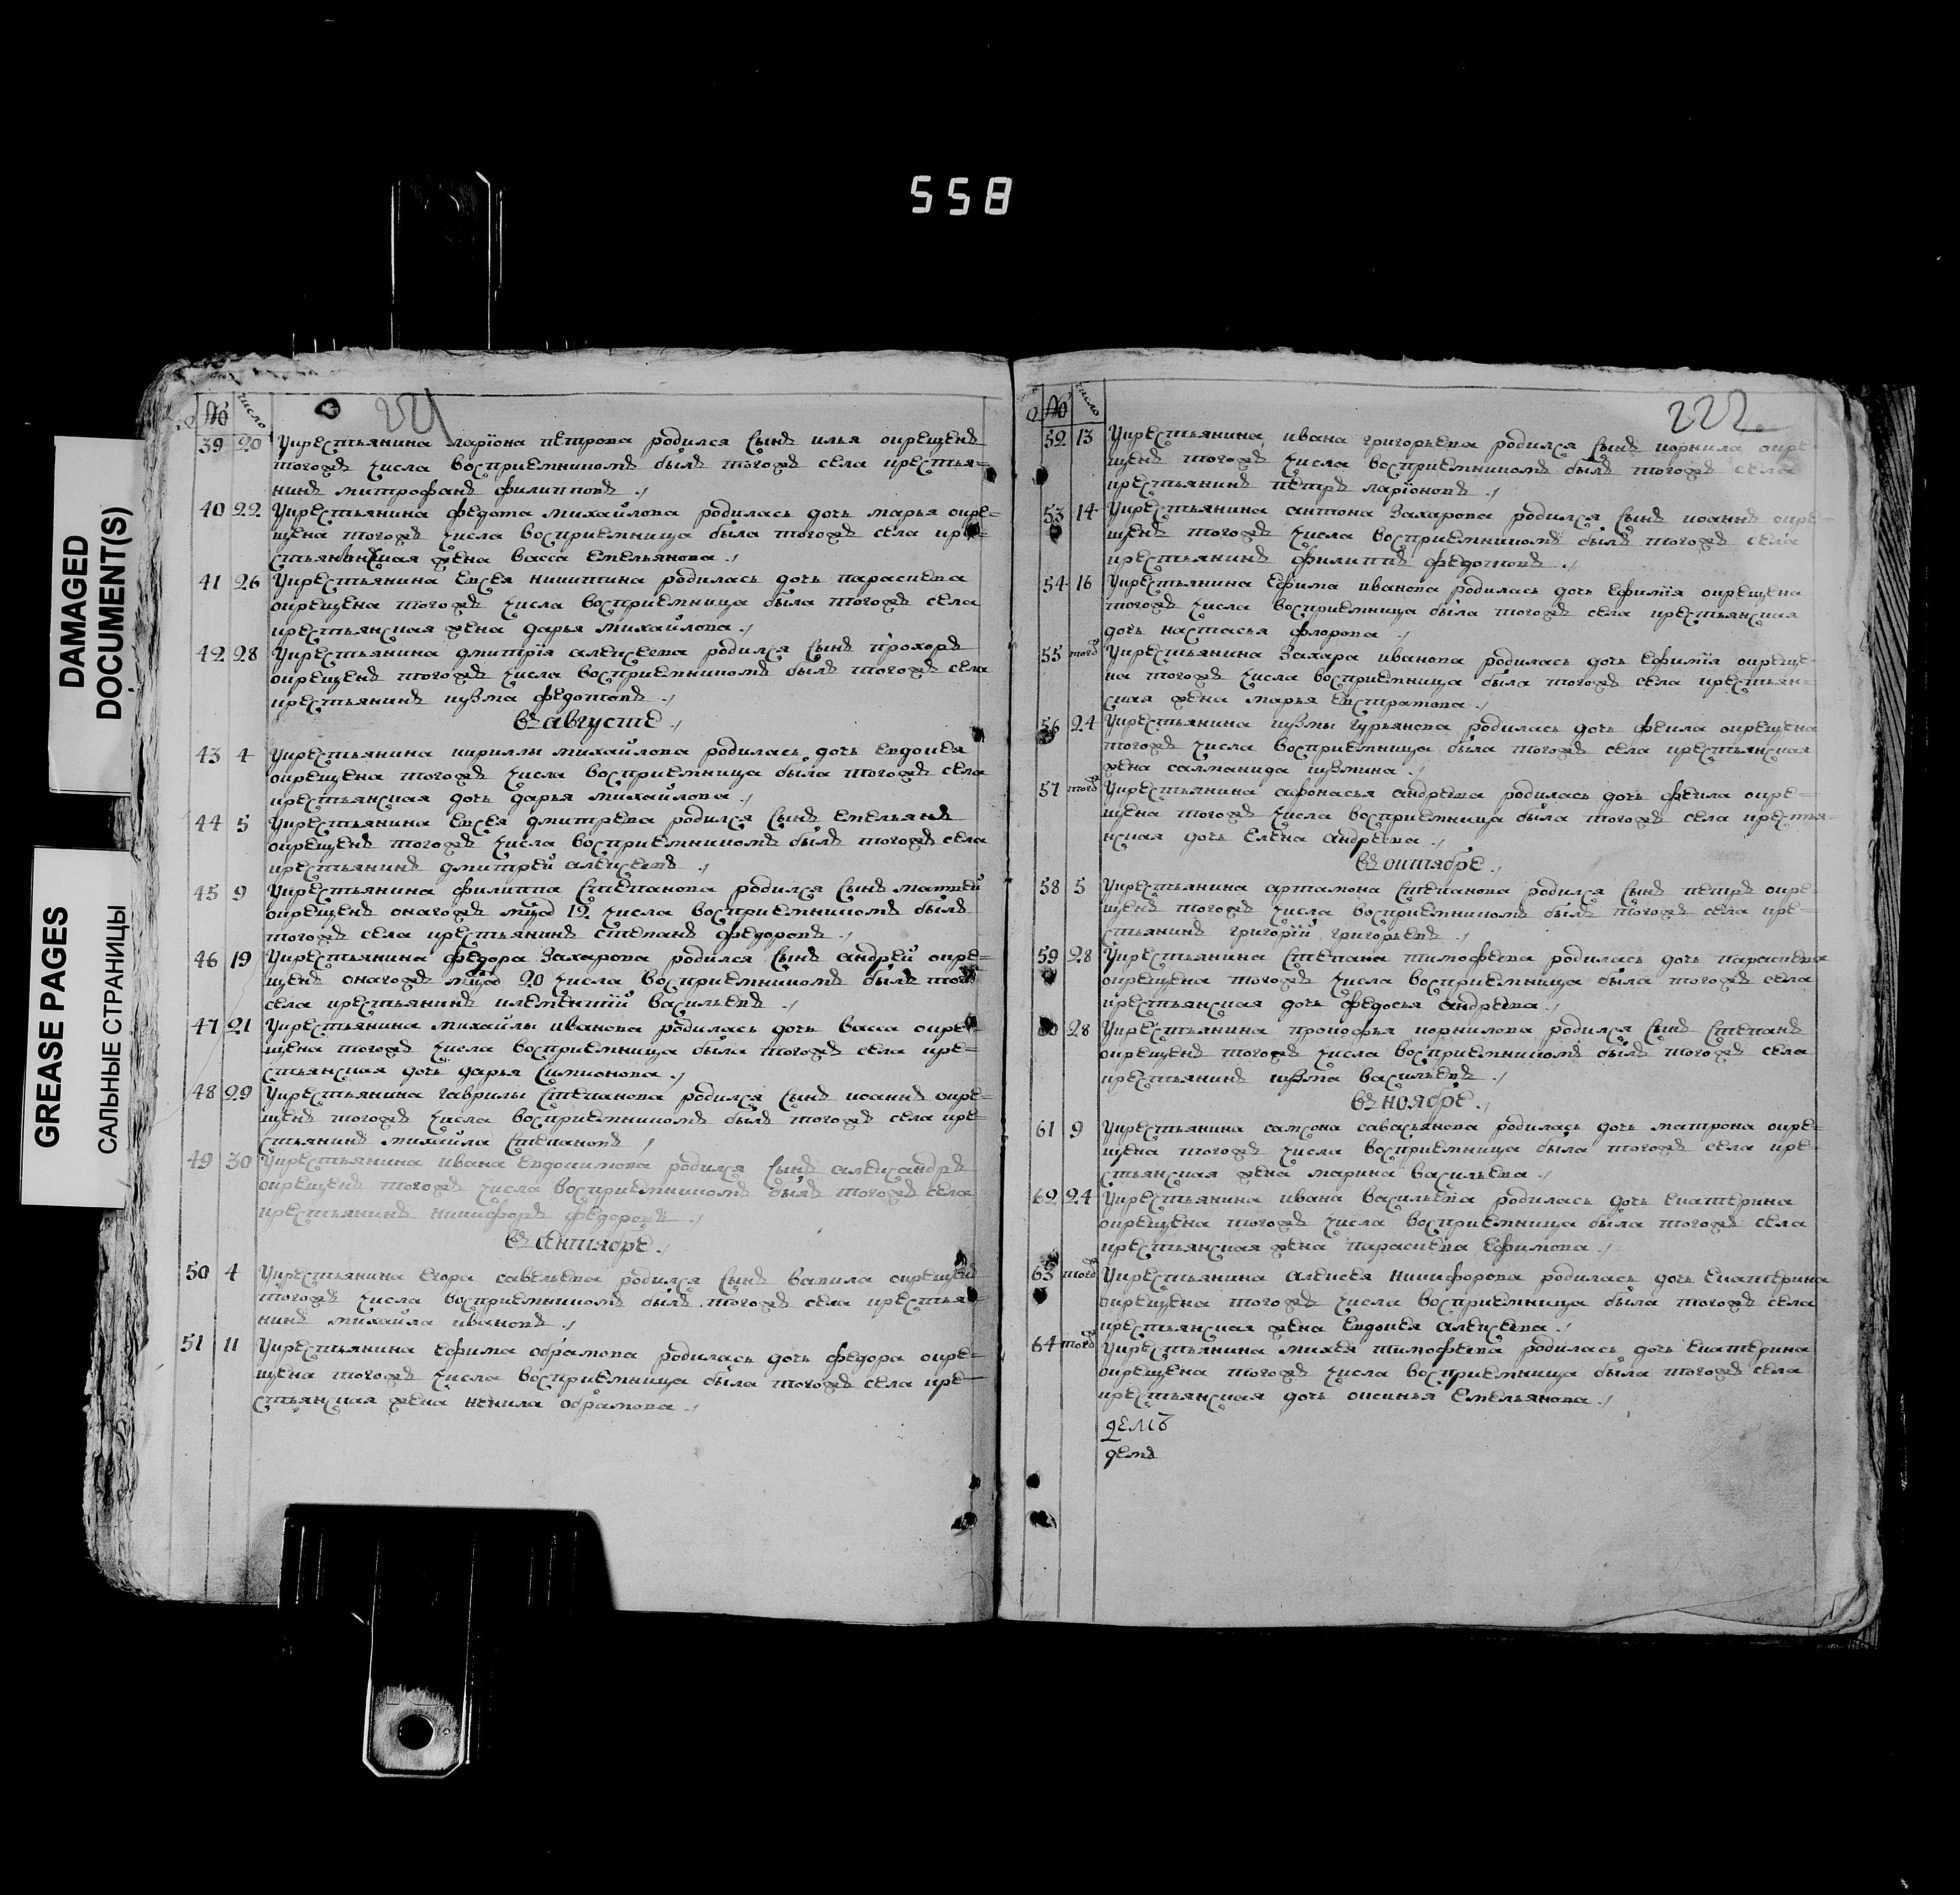 558
DAMAGED
DOCUMENT(S)
GREASE PAGES
САЛЬНЫЕ СТРАНИЦЫ
№ число
221
39 20 Укрестьянина лариона петрова родился сынъ илья окрещенъ
тогожъ числа восприемникомъ былъ тогожъ села крестья=
нинъ митрофанъ филипповъ ./
40 22 Укрестьянина федота михайлова родилась дочь марья окре=
щена тогожъ числа восприемница была тогожъ села кре=
стьянская жена васса емельянова ./
41 26 Укрестьянина евсея никитина родилась дочь параскева
окрещена тогожъ числа восприемница была тогожъ села
крестьянская жена дарья михайлова ./
42 28 Укрестьянина дмитрїя алексеева родился сынъ прохоръ
окрещенъ тогожъ числа восприемникомъ былъ тогожъ села
крестьянинъ кузма федотовъ ./
въ августе ./
43 4 Укрестьянина кириллы михайлова родилась дочь евдокея
окрещена тогожъ числа восприемница была тогожъ села
крестьянская дочь дарья михайлова ./
44 5 Укрестьянина евсея дмитрева родился сынъ емельянъ
окрещенъ тогожъ числа восприемникомъ былъ тогожъ села
крестьянинъ дмитрей алексеевъ ./
45 9 Укрестьянина филиппа степанова родился сынъ матвей
окрещенъ оногожъ мца 12 числа восприемникомъ былъ
тогожъ села крестьянинъ степанъ федоровъ ./
46 19 Укрестьянина федора захарова родился сынъ андрей окре=
щенъ оногожъ мца 20 числа восприемникомъ былъ тогожъ
села крестьянинъ клементїй васильевъ ./
47 21 Укрестьянина михайлы иванова родилась дочь васса окре=
щена тогожъ числа восприемница была тогожъ села кре=
стьянская дочь дарья симионова ./
48 29 Укрестьянина гаврилы степанова родился сынъ иоаннъ окре=
щенъ тогожъ числа восприемникомъ былъ тогожъ села кре=
стьянинъ михайла степановъ ./
49 30 Укрестьянина ивана евдокимова родился сынъ александръ
окрещенъ тогожъ числа восприемникомъ былъ тогожъ села
крестьянинъ никифоръ федоровъ ./
въ сентябре ./
50 4 Укрестьянина егора савельева родился сынъ вавила окрещенъ
тогожъ числа восприемникомъ былъ тогожъ села крестья=
нинъ михайла ивановъ ./
51 11 Укрестьянина ефима обрамова родилась дочь федора окре=
щена тогожъ числа восприемница была тогожъ села кре=
стьянская жена ненила обрамова ./
№ число
222
52 13 Укрестьянина ивана григорьева родился сынъ корнила окре
щенъ тогожъ числа восприемникомъ былъ тогожъ села
крестьянинъ петръ ларїоновъ ./
53 14 Укрестьянина антона захарова родился сынъ иоаннъ окре=
щенъ тогожъ числа восприемникомъ былъ тогожъ села
крестьянинъ филиппъ федотовъ ./
54 16 Укрестьянина ефима иванова родилась дочь ефимїя окрещена
тогожъ числа восприемница была тогожъ села крестьянская
дочь настасья флорова ./
55 тогож Укрестьянина захара иванова родилась дочь ефимїя окреще=
на тогожъ числа восприемница была тогожъ села крестьян=
ская жена марья евстратова ./
56 24 Укрестьянина кузмы гурьянова родилась дочь фекла окрещена
тогожъ числа восприемница была тогожъ села крестьянская
жена салманида кузмина ./
57 тогож Укрестьянина афонасья андреева родилась дочь фекла окре=
щена тогожъ числа восприемница была тогожъ села крестья=
нская дочь елена андреева ./
въ октябре ./
58 5 Укрестьянина артамона степанова родился сынъ петръ окре=
щенъ тогожъ числа восприемникомъ былъ тогожъ села кре=
стьянинъ григорїй григорьевъ ./
59 28 Укрестьянина степана тимофеева родилась дочь параскева
окрещена тогожъ числа восприемница была тогожъ села
крестьянская дочь федосья андреева ./
60 28 Укрестьянина прокофья корнилова родился сынъ степанъ
окрещенъ тогожъ числа восприемникомъ былъ тогожъ села
крестьянинъ кузма васильевъ ./
въ ноябре ./
61 9 Укрестьянина самсона савасьянова родилась дочь матрона окре=
щена тогожъ числа восприемница была тогожъ села кре=
стьянская жена марина васильева ./
62 24 Укрестьянина ивана васильева родилась дочь екатерина
окрещена тогожъ числа восприемница была тогожъ села
крестьянская жена параскева ефимова ./
63 тогож Укрестьянина алексея никифорова родилась дочь екатерина
окрещена тогожъ числа восприемница была тогожъ села
крестьянская жена евдокея алексеева ./
64 тогож Укрестьянина михея тимофеева родилась дочь екатерина
окрещена тогожъ числа восприемница была тогожъ села
крестьянская дочь оксинья емельянова ./